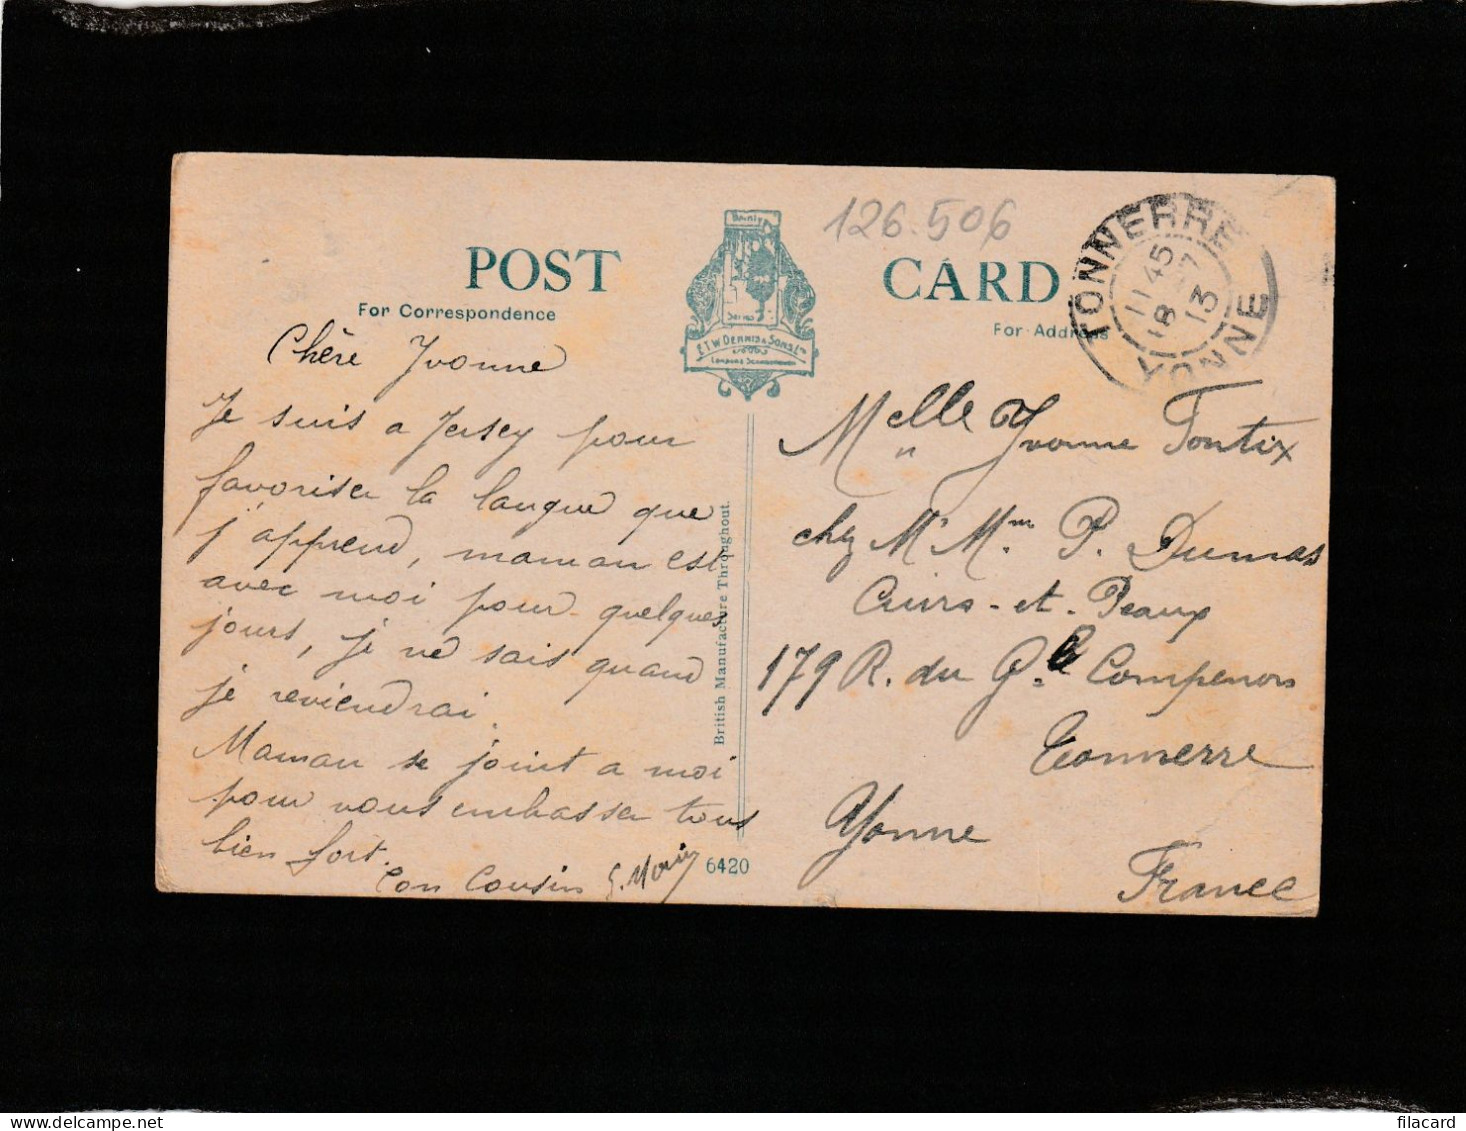 126.506
POST CARD
For Correspondence
For Address
Dainty
Series
E.T.W. DENNIS & SONS LTD
LONDON & SCARBOROUGH
TONNERRE
11 45
18 -7
13
YONNE
Chère Yvonne
Je suis a Jersey pour
favoriser la langue que
j'apprend, maman est
avec moi pour quelques
jours, je ne sais quand
je reviendrai.
Maman se joint a moi
pour vous embasser tous
bien fort.
Ton Cousin G. Morin
British Manufacture Throughout.
6420
Melle Yvonne Tontix
chez Mr Mme P. Dumas
Cuirs-et-Peaux
179 R. du Gal Compenon
Tonnerre
Yonne
France
filacard